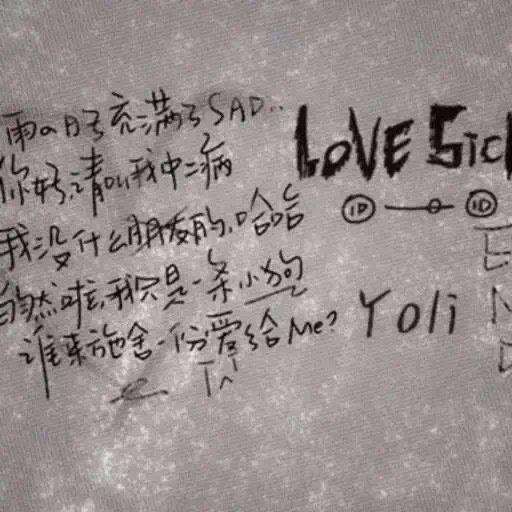 雨の日子充满了SAD..
你好,请叫我中二病
我没什么朋友的,哈哈
自然啦,我只是一条小狗
谁来施舍一份爱给Me?
LOVE Sic
ID ID
Yoli
E
N
D